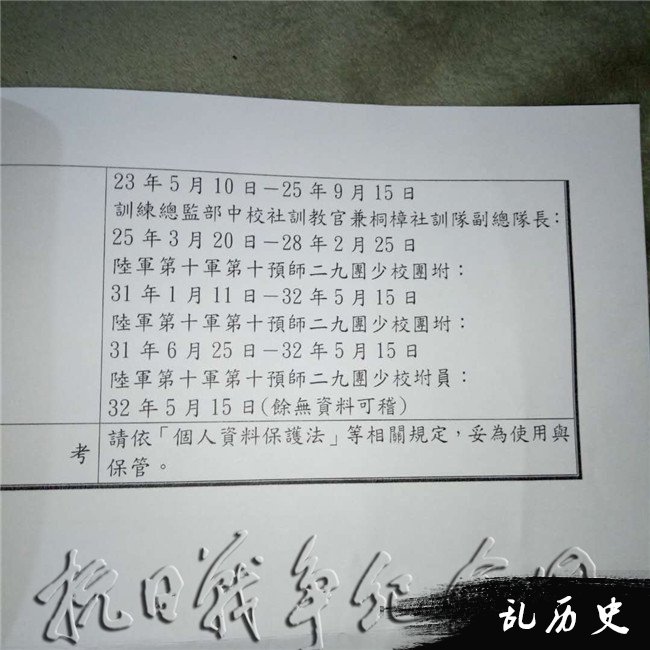 23 年 5 月 10 日－25 年 9 月 15 日
訓練總監部中校社訓教官兼桐樟社訓隊副總隊長：
25 年 3 月 20 日－28 年 2 月 25 日
陸軍第十軍第十預師二九團少校團坿：
31 年 1 月 11 日－32 年 5 月 15 日
陸軍第十軍第十預師二九團少校團坿：
31 年 6 月 25 日－32 年 5 月 15 日
陸軍第十軍第十預師二九團少校坿員：
32 年 5 月 15 日(餘無資料可稽)
考
請依「個人資料保護法」等相關規定，妥為使用與
保管。
抗日戰爭紀念網
乱历史